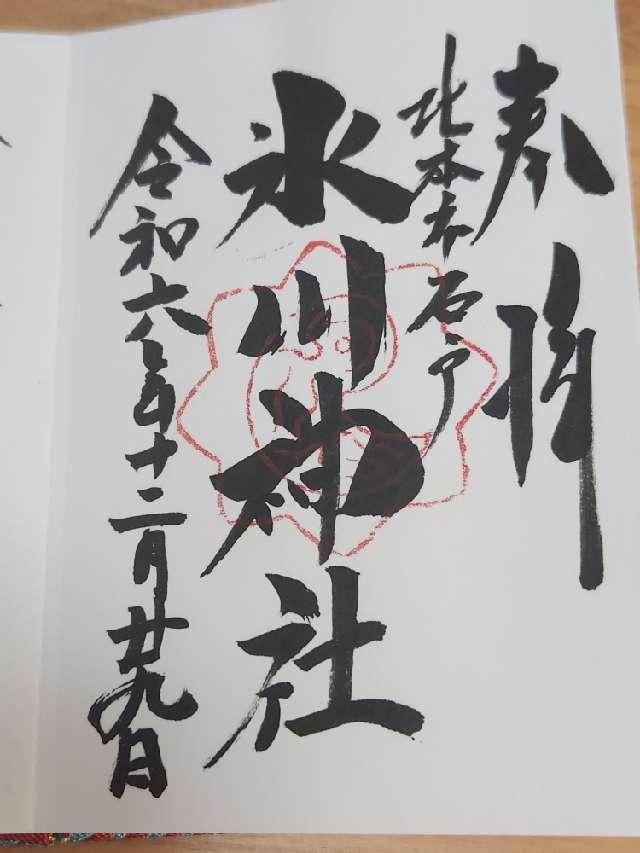 奉拝
北本市石戸
氷川神社
令和六年十二月廿九日